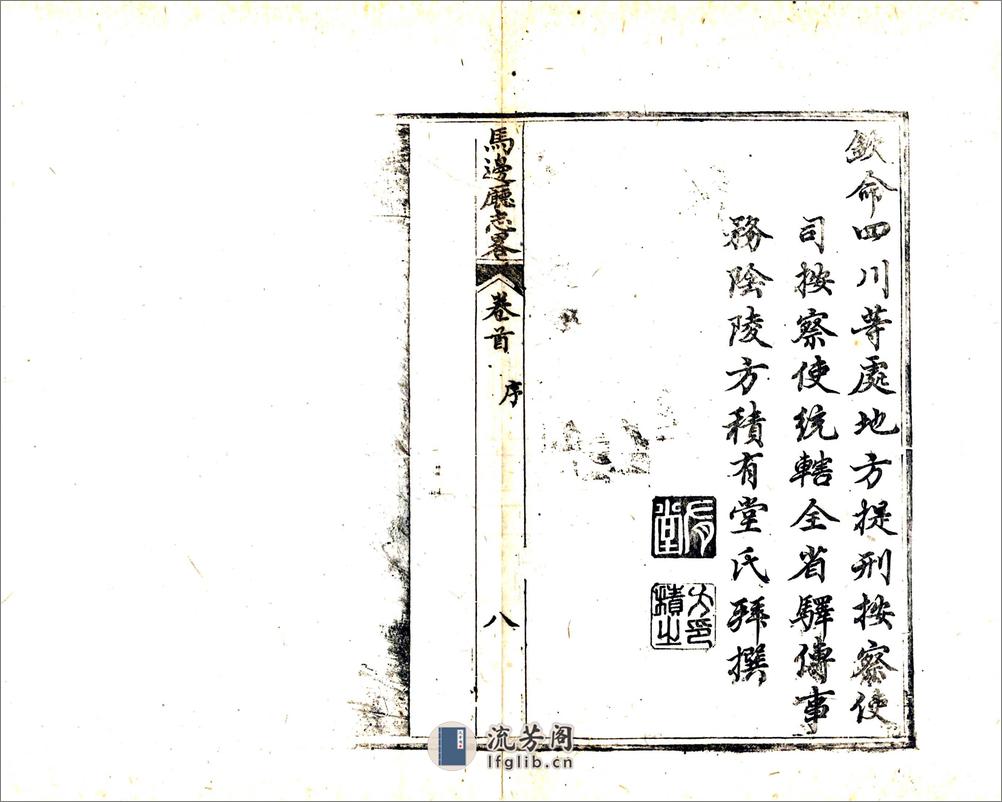 欽命四川等處地方提刑按察使
司按察使統轄全省驛傳事
務陰陵方積有堂氏拜撰
有堂
方積之印
馬邊廳志畧
卷首
序
八
流芳阁
lfglib.cn